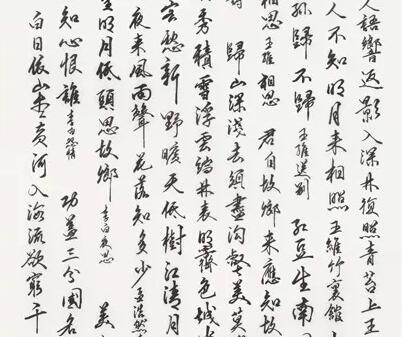 人語響返影入深林復照青苔上王
人不知明月来相照王維竹裏館
孫歸不歸王維送別 紅豆生南
相思王維相思 君自故鄉来應知故
歸山深淺去須盡溝壑美莫
秀積雪浮雲端林表明霽色城
客愁新野曠天低樹江清月
夜来風雨聲花落知多少孟浩然
望明月低頭思故鄉李白夜思 美
知心恨誰李白怨情 功蓋三分國名
白日依山盡黄河入海流欲窮千